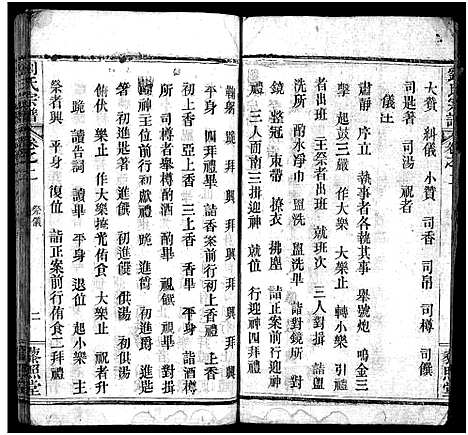 劉氏宗譜 卷之二
大贊 糾儀 小贊 司香 司帛 司樽 司饌
司毡者 司湯 司祝
儀注
肅靜 序立 執事者各執其事 舉號炮 鳴金三
擊 起鼓三嚴 作大樂 大樂止 轉小樂 引禮
者出班 主祭者出班 就班次 三人對揖 詣盥
洗所 酌水淨巾 盥洗 盥洗畢 詣對鏡所 對
鏡 整冠 束帶 撩衣 拂塵 詣正案前行迎神
禮 三人面南三揖迎神 就位 行迎神四拜禮
鞠躬 跪 拜興 拜興 拜興 拜興
平身 四拜禮畢 詣香案前行上香禮 跪
初上香 亞上香 三上香 香畢 平身 詣酒樽
所 司樽者舉樽酌酒 酌畢 視饌 視畢 對揖
詣神王位前行初獻禮 跪 進酌 初進爵 進匙
箸 初進羹 初進饌 俱湯 初進湯
俯伏 樂止 作大樂撓光侑食 大樂止 祝詣祝
跪 讀告詞 讀畢 平身 退位 起小樂 主
祭者興 平身 復位 詣正案前行侑食二拜禮
劉氏宗譜 卷之二 祭儀 二 藜照堂
藜照堂